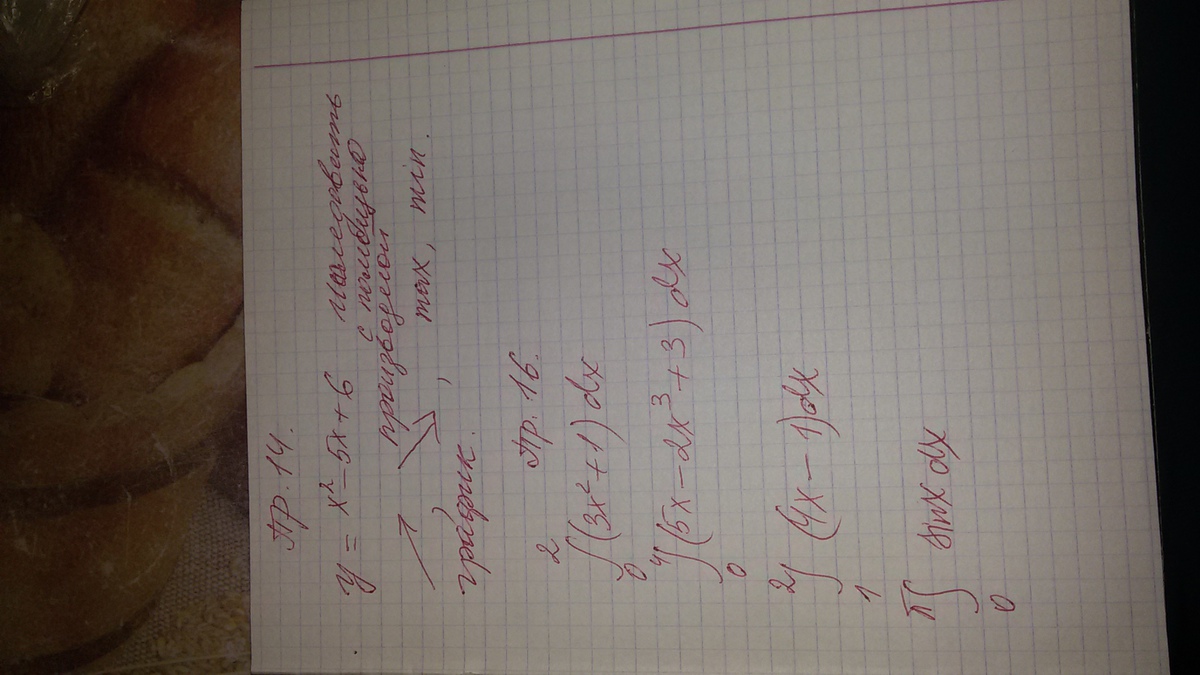 Пр. 14.
y = x² - 5x + 6 Исследовать
с помощью
производной
↗, ↘, max, min.
график.
Пр. 16.
∫₀² (3x² + 1) dx
∫₀⁴ (5x - 2x³ + 3) dx
∫₁² (4x - 1) dx
∫₀^π sinx dx